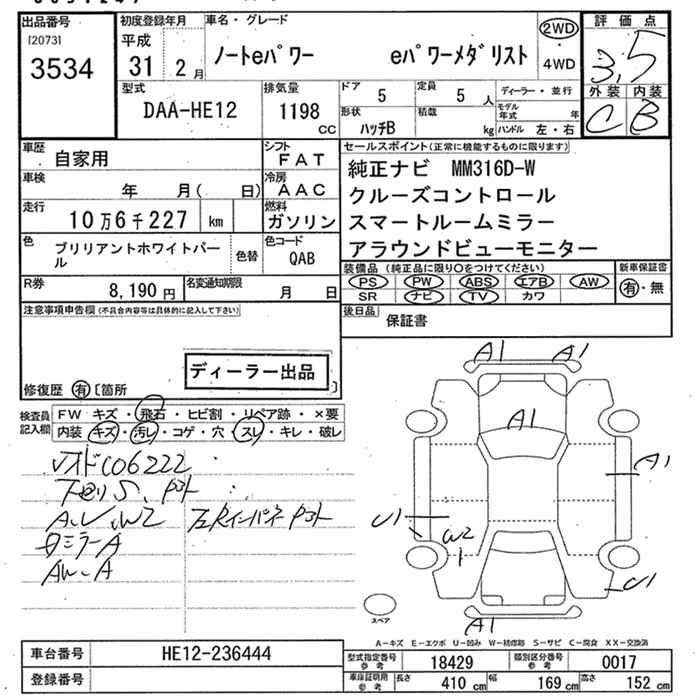 出品番号
[2073]
3534
初度登録年月
平成
31 2月
車名・グレード
ノートeパワー eパワーメダリスト
2WD
・
4WD
評価点
3.5
外装 内装
C B
型式
DAA-HE12
排気量
1198 cc
ドア 5
定員 5 人
形状 ハッチB
積載 kg
ディーラー・並行
モデル年式 年
ハンドル 左・右
車歴 自家用
シフト FAT
車検 年 月( 日)
冷房 AAC
走行 10万6千227 km
燃料 ガソリン
色 ブリリアントホワイトパール
色替
色コード QAB
R券 8,190円
名変通知期限 月 日
セールスポイント(正常に機能するものに限ります)
純正ナビ MM316D-W
クルーズコントロール
スマートルームミラー
アラウンドビューモニター
装備品(純正品に限り○をつけてください)
PS PW ABS エアB AW
SR ナビ TV カワ
新車保証書
有・無
後日品 保証書
注意事項申告欄(不具合内容等は具体的に記入して下さい)
ディーラー出品
修復歴 有 [箇所 ]
検査員記入欄
FW キズ・飛石・ヒビ割・リペア跡・×要
内装 キズ・汚レ・コゲ・穴・スレ・キレ・破レ
A1 A1
A1
A1
U1
W2
U1
A1
スペア
A-キズ E-エクボ U-凹み W-補修跡 S-サビ C-腐食 XX-交換済
車台番号 HE12-236444
登録番号
型式指定番号参考 18429
類別区分番号参考 0017
車庫証明用参考 長さ 410 cm 幅 169 cm 高さ 152 cm